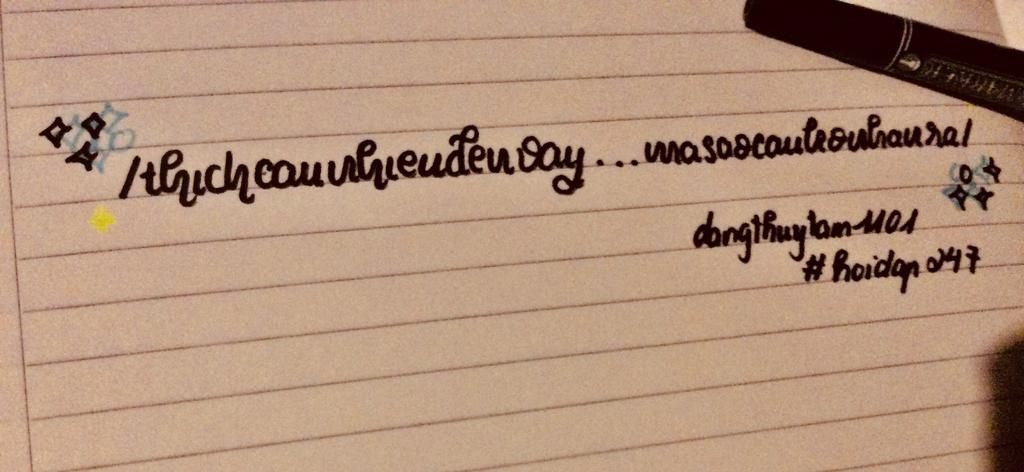 /thichcaunhieudenvay...masaocaukonhanra/
dangthuytam1101
#hoidap247